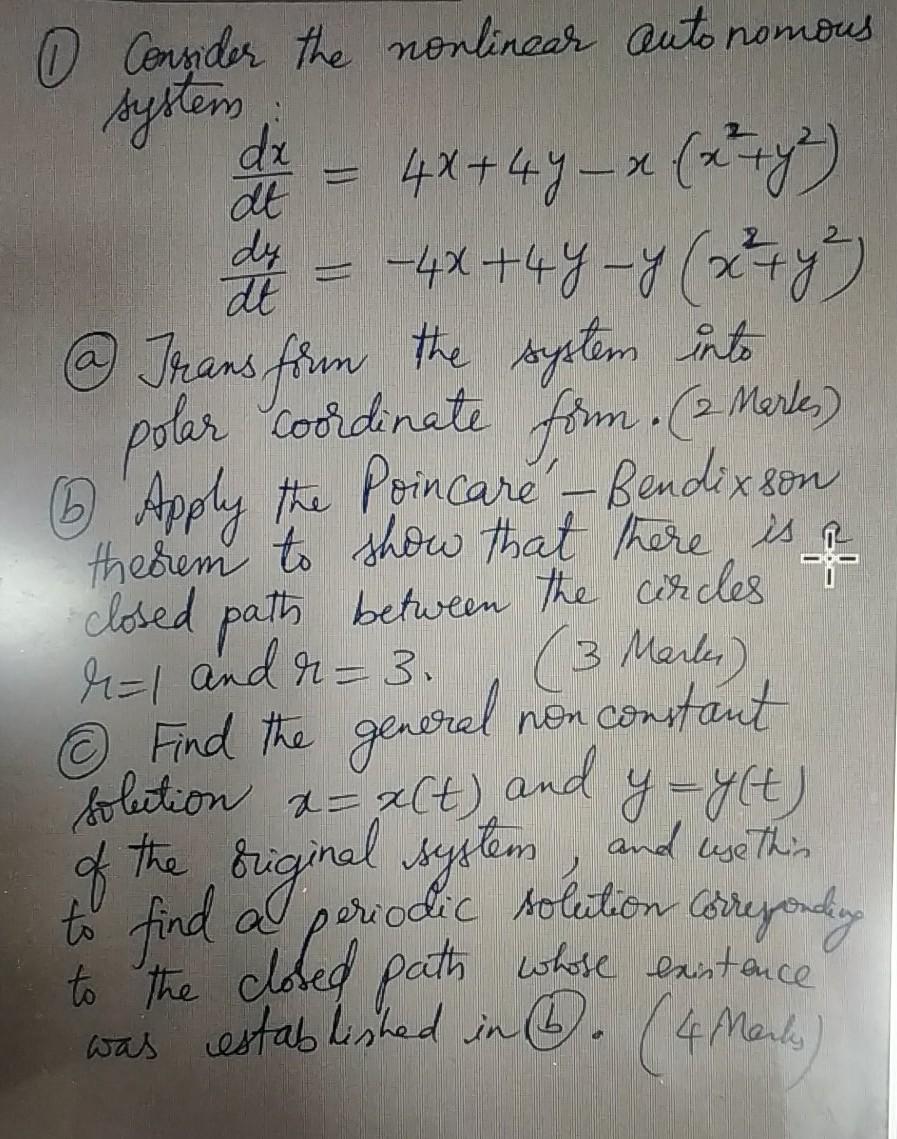 ① Consider the nonlinear autonomous
system :
dx/dt = 4x + 4y - x (x² + y²)
dy/dt = -4x + 4y - y (x² + y²)
ⓐ Transform the system into
polar coordinate form. (2 Marks)
ⓑ Apply the Poincaré - Bendixson
theorem to show that there is a
closed path between the circles
r=1 and r=3. (3 Marks)
ⓒ Find the general nonconstant
solution x = x(t) and y = y(t)
of the original system, and use this
to find a periodic solution corresponding
to the closed path whose existence
was established in ⓑ. (4 Marks)